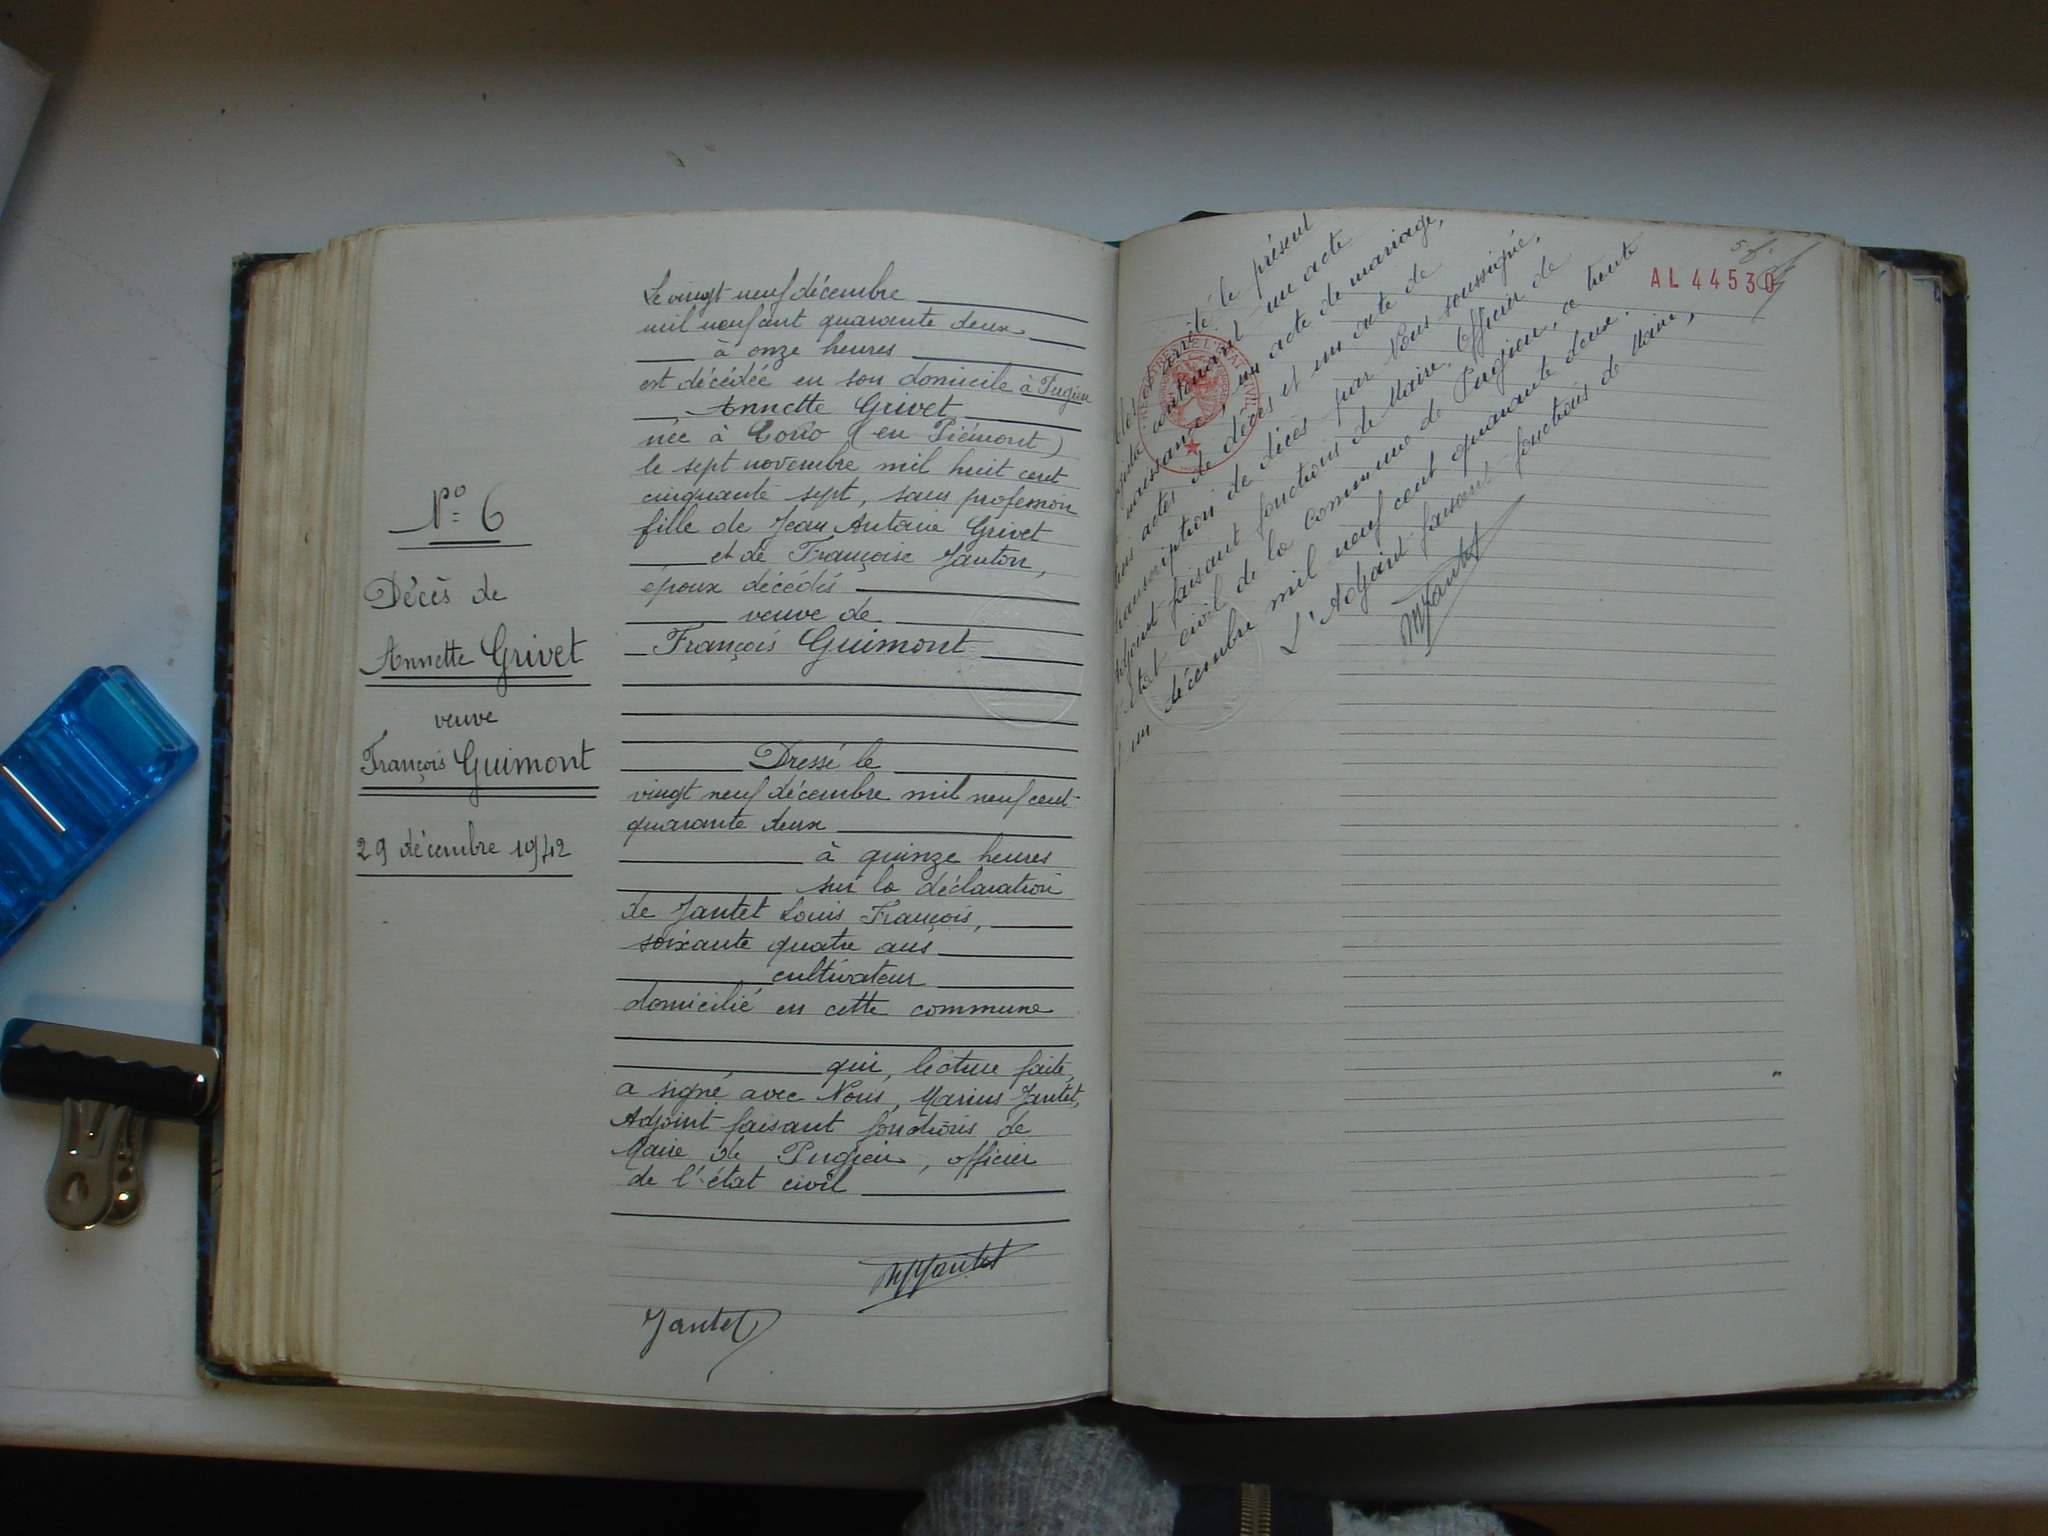 N° 6
Décès de
Annette Grivet
veuve
François Guimont
29 décembre 1942
Le vingt neuf décembre
mil neuf cent quarante deux
à onze heures
est décédée en son domicile à Pugieu
Annette Grivet
née à Corio (en Piémont)
le sept novembre mil huit cent
cinquante sept, sans profession
fille de Jean Antoine Grivet
et de Françoise Janton,
époux décédés
veuve de
François Guimont
Dressé le
vingt neuf décembre mil neuf cent
quarante deux
à quinze heures
sur la déclaration
de Jantet Louis François,
soixante quatre ans
cultivateur
domicilié en cette commune
qui, lecture faite,
a signé avec Nous, Marius Jantet,
Adjoint faisant fonctions de
Maire de Pugieu, officier
de l'état civil
MJantet
Jantet
AL 44530
arrêté le présent
contenant un acte
naissance, un acte de mariage,
actes de décès et un acte de
transcription de décès par Nous soussigné,
Adjoint faisant fonctions de Maire, Officier de
l'état civil de la commune de Pugieu, ce trente
un décembre mil neuf cent quarante deux.
L'Adjoint faisant fonctions de Maire,
MJantet